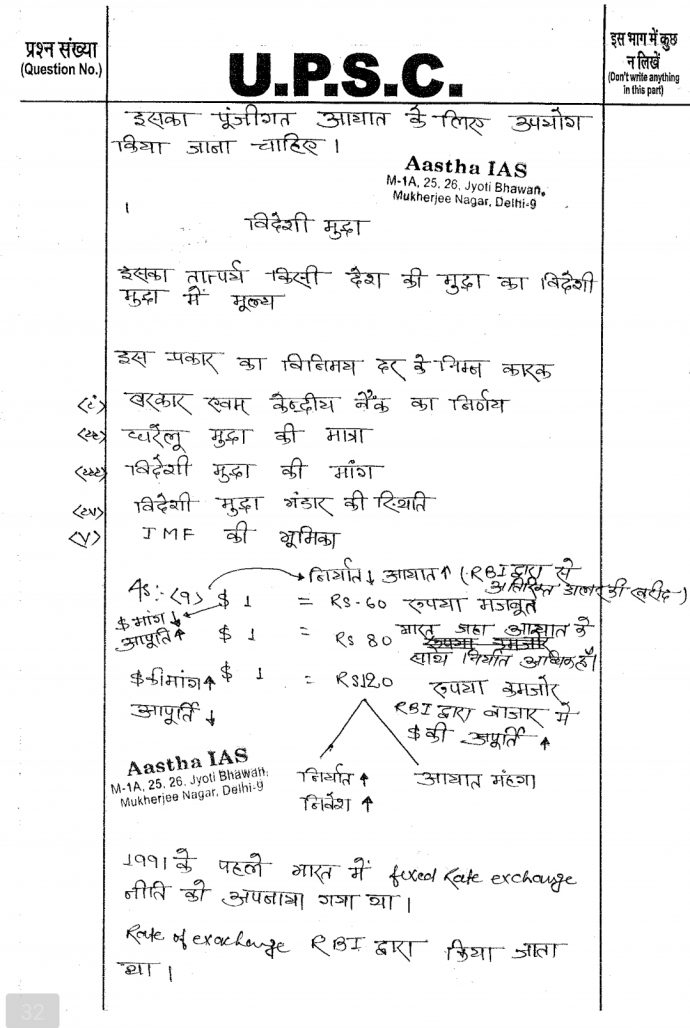 प्रश्न संख्या
(Question No.)
U.P.S.C.
इस भाग में कुछ
न लिखें
(Don't write anything
in this part)
इसका पूंजीगत आयात के लिए उपयोग
किया जाना चाहिए।
Aastha IAS
M-1A, 25. 26, Jyoti Bhawan,
Mukherjee Nagar, Delhi-9
विदेशी मुद्रा
इसका तात्पर्य किसी देश की मुद्रा का विदेशी
मुद्रा में मूल्य
इस प्रकार का विनिमय दर के निम्न कारक
(i) सरकार एवम केन्द्रीय बैंक का निर्णय
(ii) घरेलू मुद्रा की मात्रा
(iii) विदेशी मुद्रा की मांग
(iv) विदेशी मुद्रा भंडार की स्थिति
(v) IMF की भूमिका
निर्यात↓ आयात↑ (RBI द्वारा से
अतिरिक्त डालर की खरीद)
As:- (१) $ 1 = RS-60 रुपया मजबूत
$ मांग ↓
आपूर्ति ↑
$ 1 = Rs 80 भारत जहा आयात के
रुपया कमजोर
साथ निर्यात अधिक है।
$ की मांग ↑ $ 1 = RS120 रुपया कमजोर
आपूर्ति ↓
RBI द्वारा बाजार में
$ की आपूर्ति ↑
Aastha IAS
M-1A, 25. 26, Jyoti Bhawan,
Mukherjee Nagar, Delhi-9
निर्यात ↑ आयात मंहगा
निवेश ↑
1991 के पहले भारत में fixed Rate exchange
नीति को अपनाया गया था।
Rate of exachange RBI द्वारा किया जाता
था।
32